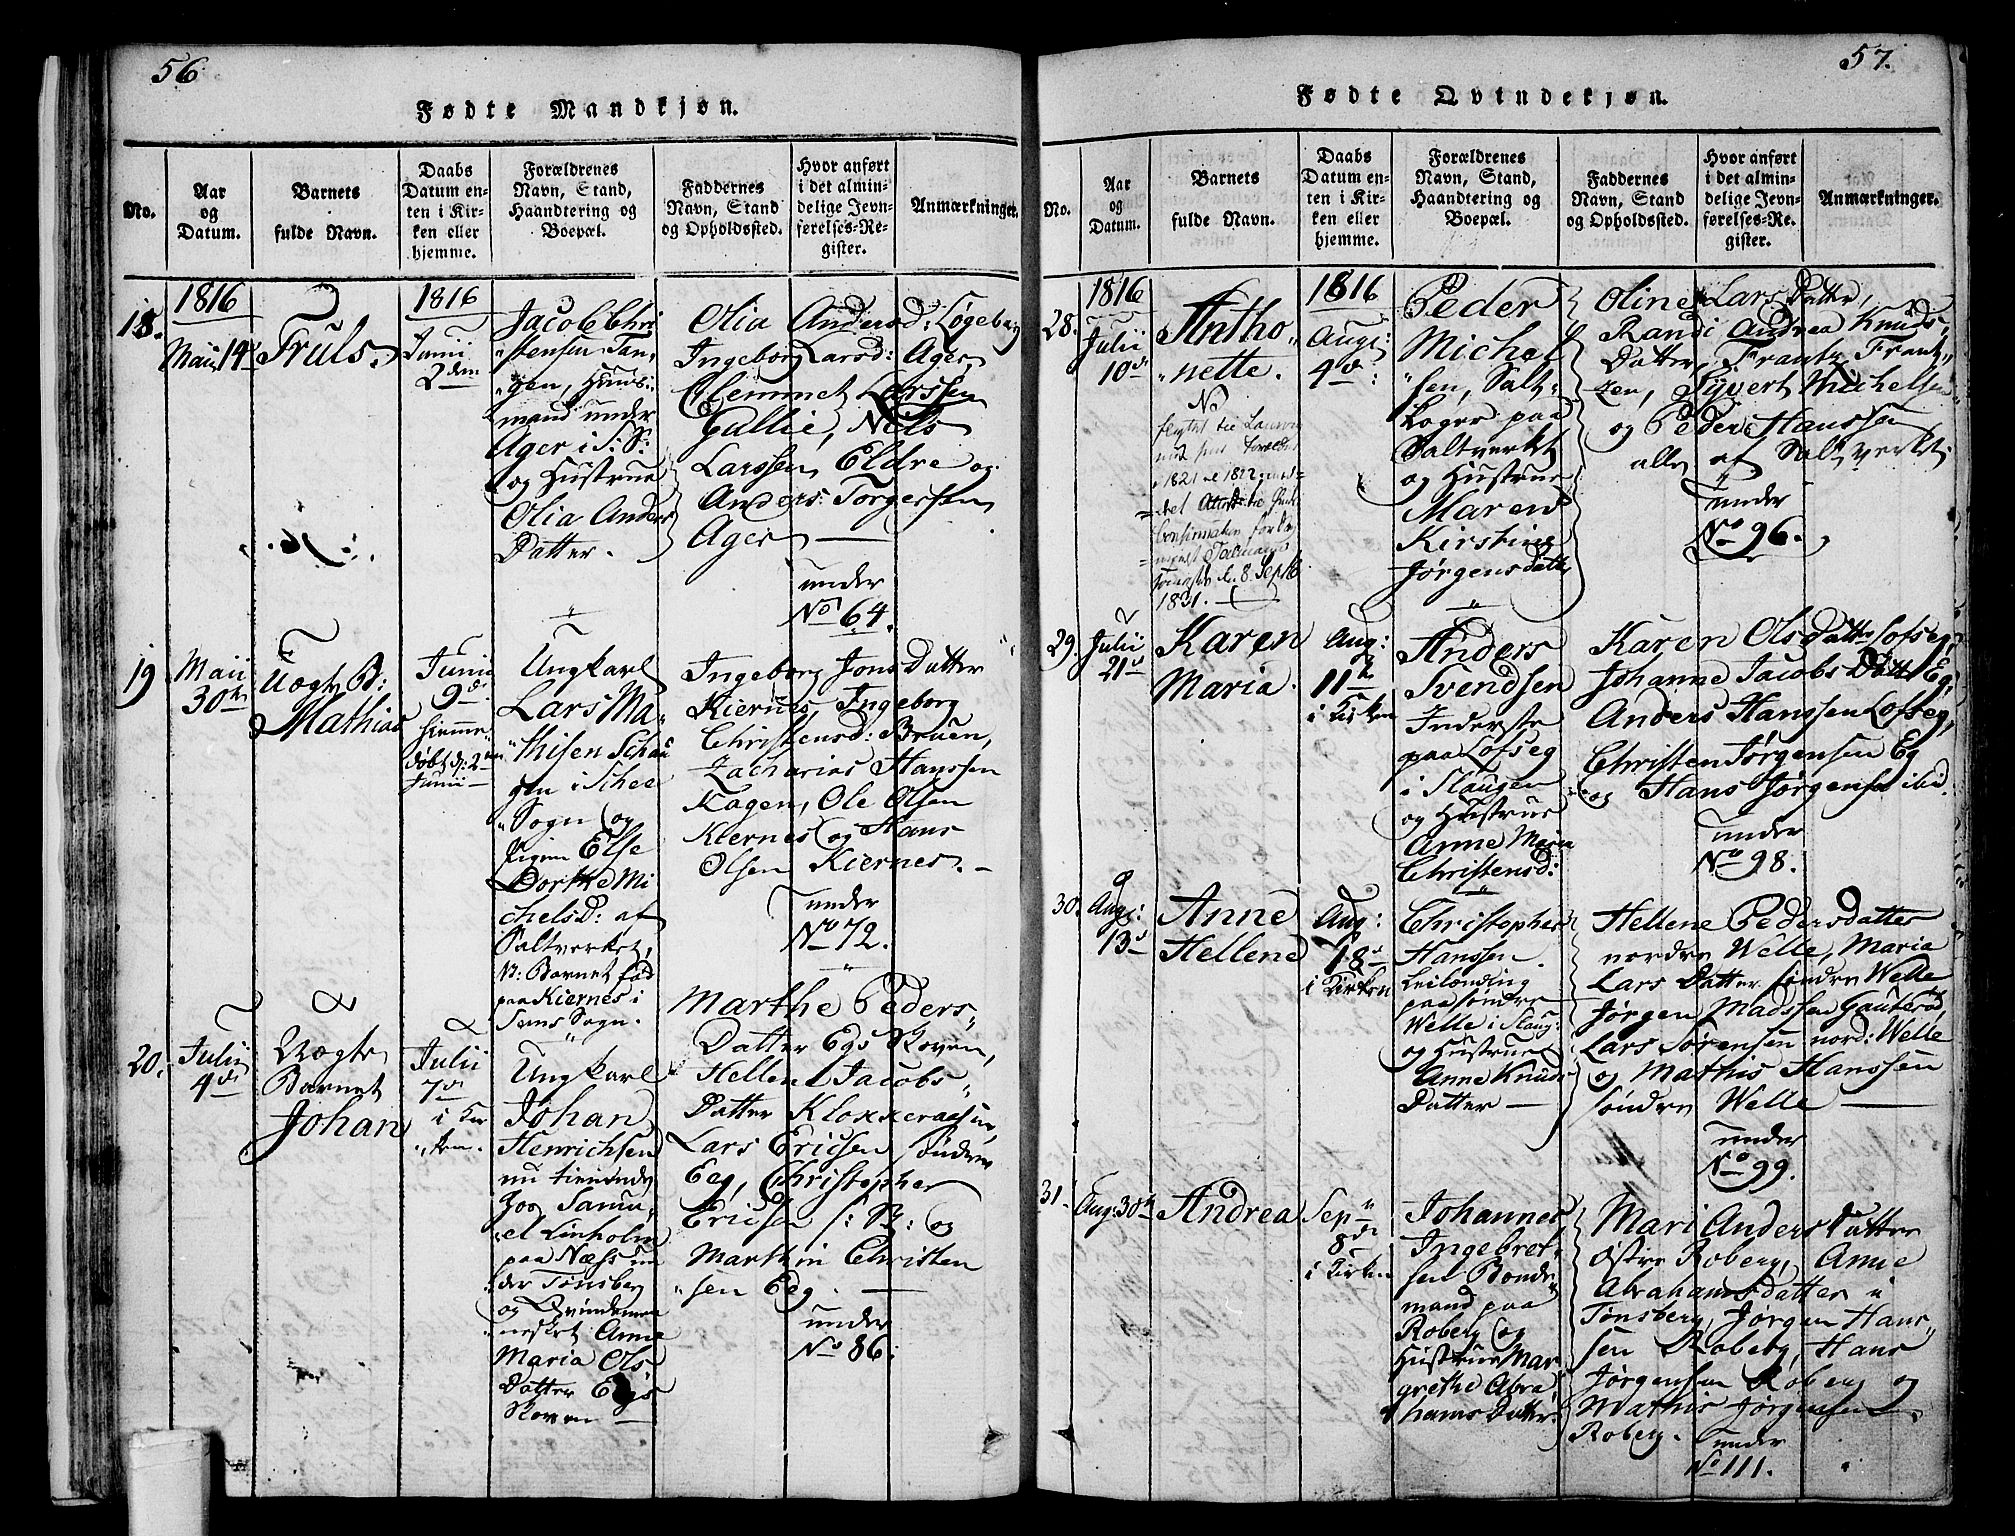 56
Fødte Mandkjøn.
No.
Aar
og
Datum.
Barnets
fulde Navn.
Daabs
Datum en-
ten i Kir-
ken eller
hjemme.
Forældrenes
Navn, Stand,
Haandtering og
Boepæl.
Faddernes
Navn, Stand
og Opholdssted.
Hvor anført
i det almin-
delige Jevn-
førelses-Re-
gister.
Anmærkninger.
18.
1816
Maii 14
Truls.
1816
Junii
2den
Jacob Chri
"stensen Tan-
"gen, Huus-
mand under
Ager i S: S:
og Hustrue
Olia Anders
Datter.
Olia Andersd: Løgeberg
Ingeborg Larsd: Ager,
Clemmet Larssen
Gullie, Nils
Larssen Eldre og
Anders Torgersen
Ager
under
No 64.
19
Maii
30te
Uægte B:
Mathias
Junii
9de
hiemme
døbt d: 2den
Junii
Ungkarl
Lars Ma-
"thisen Schau
gen i Schee
"Sogn og
Pigen Else
Dorthe Mi
chelsD: af
Saltverket,
N: Barnet fød
paa Kiernes i
Sems Sogn.
Ingeborg JonsDatter
Kiernes, Ingeborg
Christensd: Bruen,
Zacharias Hanssen
Kagen, Ole Olsen
Kiernes og Hans
Olsen Kiernes.
under
No 72.
20.
Julii
4de
Uægte
Barnet
Johan
Julii
7de
i Kir
"ken.
Ungkarl
Johan
Henrichsen
nu tienende
hos Samu-
"el Linholm
paa Næss un
der Tønsberg
og Qvindemen
nesket Anne
Maria Ols
Datter Egs
Skoven
Marthe Peders-
Datter Egs Skoven,
Hellene Jacobs-
Datter Kloxxeraasen,
Lars Ericsen Søndre
Eeg, Christopher
Ericsen /: S: og
Marthin Christen
"sen Eeg.
under
No 86.
57.
Fødte Qvindekjøn.
No.
Aar
og
Datum.
Barnets
fulde Navn.
Daabs
Datum en-
ten i Kir-
ken eller
hjemme.
Forældrenes
Navn, Stand,
Haandtering og
Boepæl.
Faddernes
Navn, Stand
og Opholdssted.
Hvor anført
i det almin-
delige Jevn-
førelses-Re-
gister.
Anmærkninger.
28.
1816
Julii
10de
Antho-
"nette.
1831.
1816
Aug:
4de:
Peder
Michel
"sen, Salt-
Loger paa
Saltverket
og Hustrue
Maren
Kirstine
Jørgensdatter
Oline Lars Datter,
Randi Andrea Knuds-
Datter, Frantz Frant-
zen, Syvert Michelsen
og Peder Hanssen
alle af Saltverket.
under
No 96.
29.
Julii
21de
Karen
Maria.
Aug:
11te
i Kirken
Anders
Svendsen
Inderste
paa Lofseg
i Slaugen
og Hustrue
Anne Maria
Christensd:
Karen OlsDatter Lofseg,
Johanne Jacobs Datt: Eg,
Anders Hanssen Lofseg,
Christen Jørgensen Eg
og Hans Jørgensen ibid.
under
No 98.
30.
Aug:
13de
Anne
Hellene
Aug:
18de
i Kirken
Christopher
Hanssen
Leilænding
paa søndre
Welle i Slaug:
og Hustrue
Anne Knuds
Datter
Hellene Pedersdatter
nordre Welle, Maria
Lars Datter søndre Welle
Jørgen Madssen Gauterød,
Lars Sørensen nord: Welle
og Mathis Hanssen
søndre Welle
under
No 99.
31.
Aug: 30te
Andrea
Sep
8de
i Kirken
Johannes
Ingebret-
sen Bonde-
mand paa
Roberg og
Hustrue Mar
grethe Abra
hams Datter
Mari Anders Datter
østre Roberg, Anne
Abrahamsdatter i
Tønsberg, Jørgen Hans-
sen Roberg, Hans
Jørgensen Roberg og
Mathis Jørgensen
Roberg.
under
No 111.